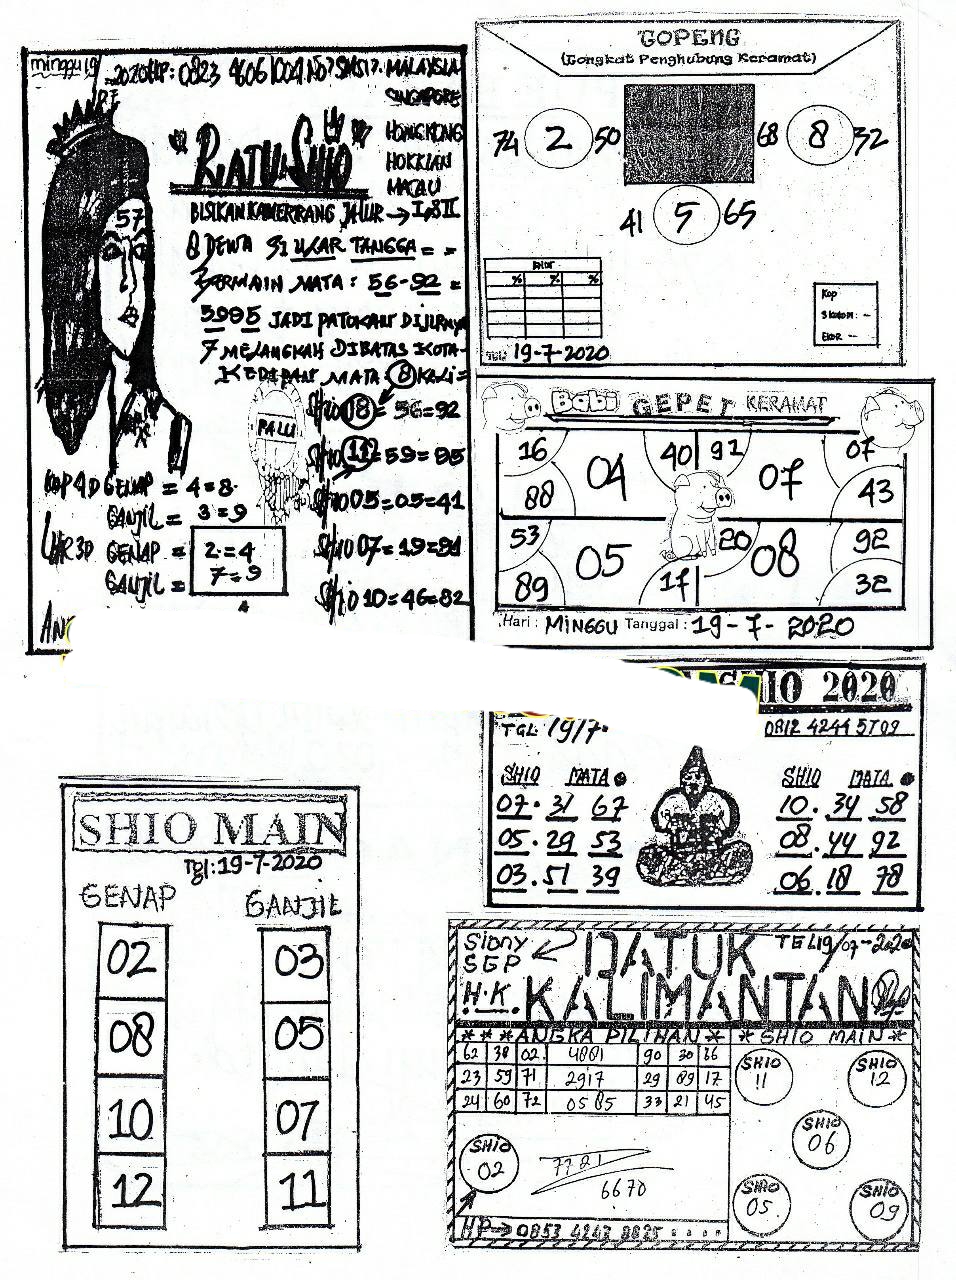 minggu 19
-2020 HP: 0823 4606 1004 No? SMS!?. MALAYSIA
SINGAPORE
HONGKONG
HOKKIAN
MACAU
RATU SHIO
57
8 DEWA 31 ULAR TANGGA = =
BERMAIN MATA : 56-92 =
5995 JADI PATOKAN
7 MELANGKAH DIBATAS KOTA-
KEDIPAN MATA 8 KALI =
SHIO 08 = 56=92
PALU
SHIO 05=05=41
SHIO 07=19=91
SHIO 10=46=82
KOP 4D GENAP = 4=8
GANJIL = 3=9
GENAP = 2=4
GANJIL = 7=9
GOPENG
(Tongkat Penghubung Keramat)
74 2 50
68 8 32
41 5 65
% % %
Kop
EKOR --
19-7-2020
Babi GEPET KERAMAT
16 04 40 92 07 07
88 43
53 05 20 08 92
89 17 32
Hari : MINGGU Tanggal : 19-7-2020
SHIO 2020
TGL: 19/7-
0812 4244 5709
SHIO MATA
07. 31 67
05. 29 53
03. 51 39
SHIO MATA
10. 34 58
08. 44 92
06. 18 78
SHIO MAIN
Tgl: 19-7-2020
GENAP GANJIL
02 03
08 05
10 07
12 11
Sidny
SGP
H.K.
DATUK
KALIMANTAN
19/07-2020
* * * ANGKA PILIHAN * * SHIO MAIN *
62 38 02 4881 90 30 26
23 59 71 2917 29 89 17
24 60 72 0585 33 21 45
SHIO
02
7721
6670
SHIO
11
SHIO
12
SHIO
06
SHIO
05.
SHIO
09
HP→ 0853 4243 8825